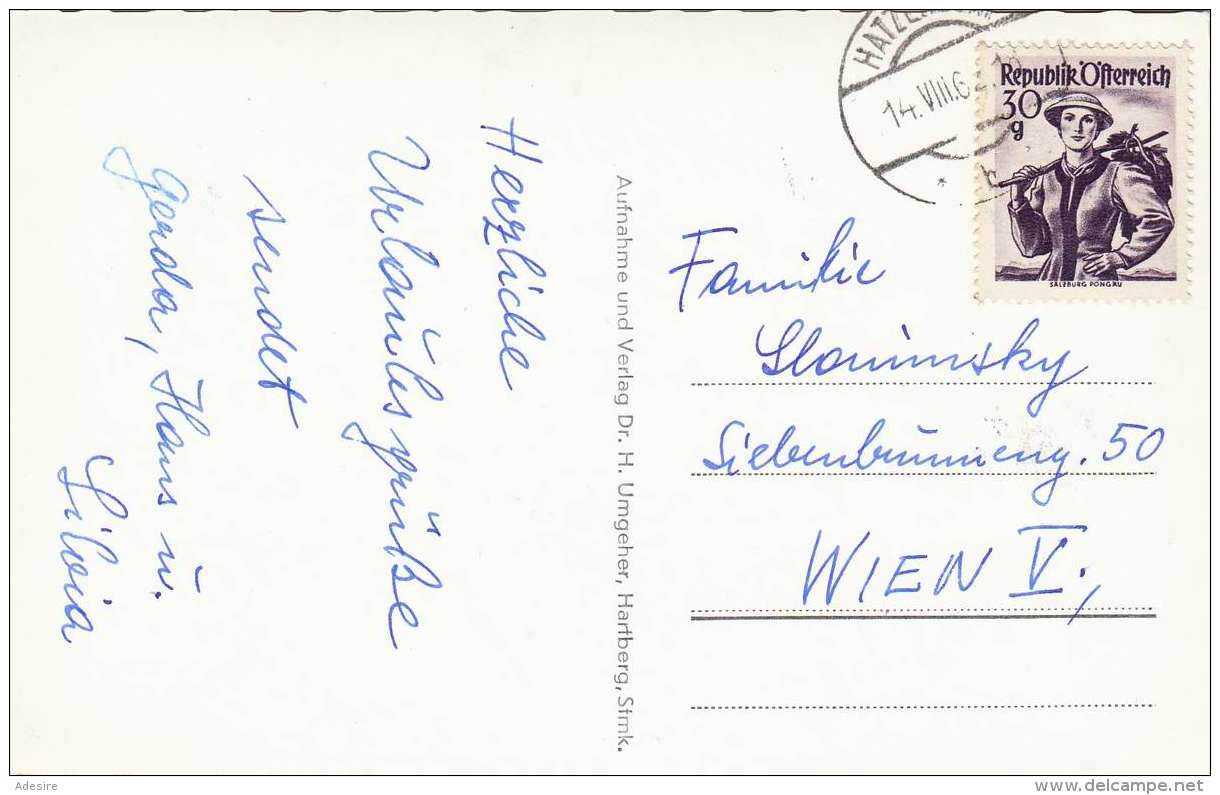 Herzliche
Urlaubsgrüße
sendet
Gerda, Hans u.
Silvia
Aufnahme und Verlag Dr. H. Umgeher, Hartberg, Stmk.
14.VIII.62
Republik Österreich
30
g
SALZBURG PONGAU
Familie
Slonimsky
Siebenbrunneng. 50
WIEN V.,
Adesire
delcampe.net